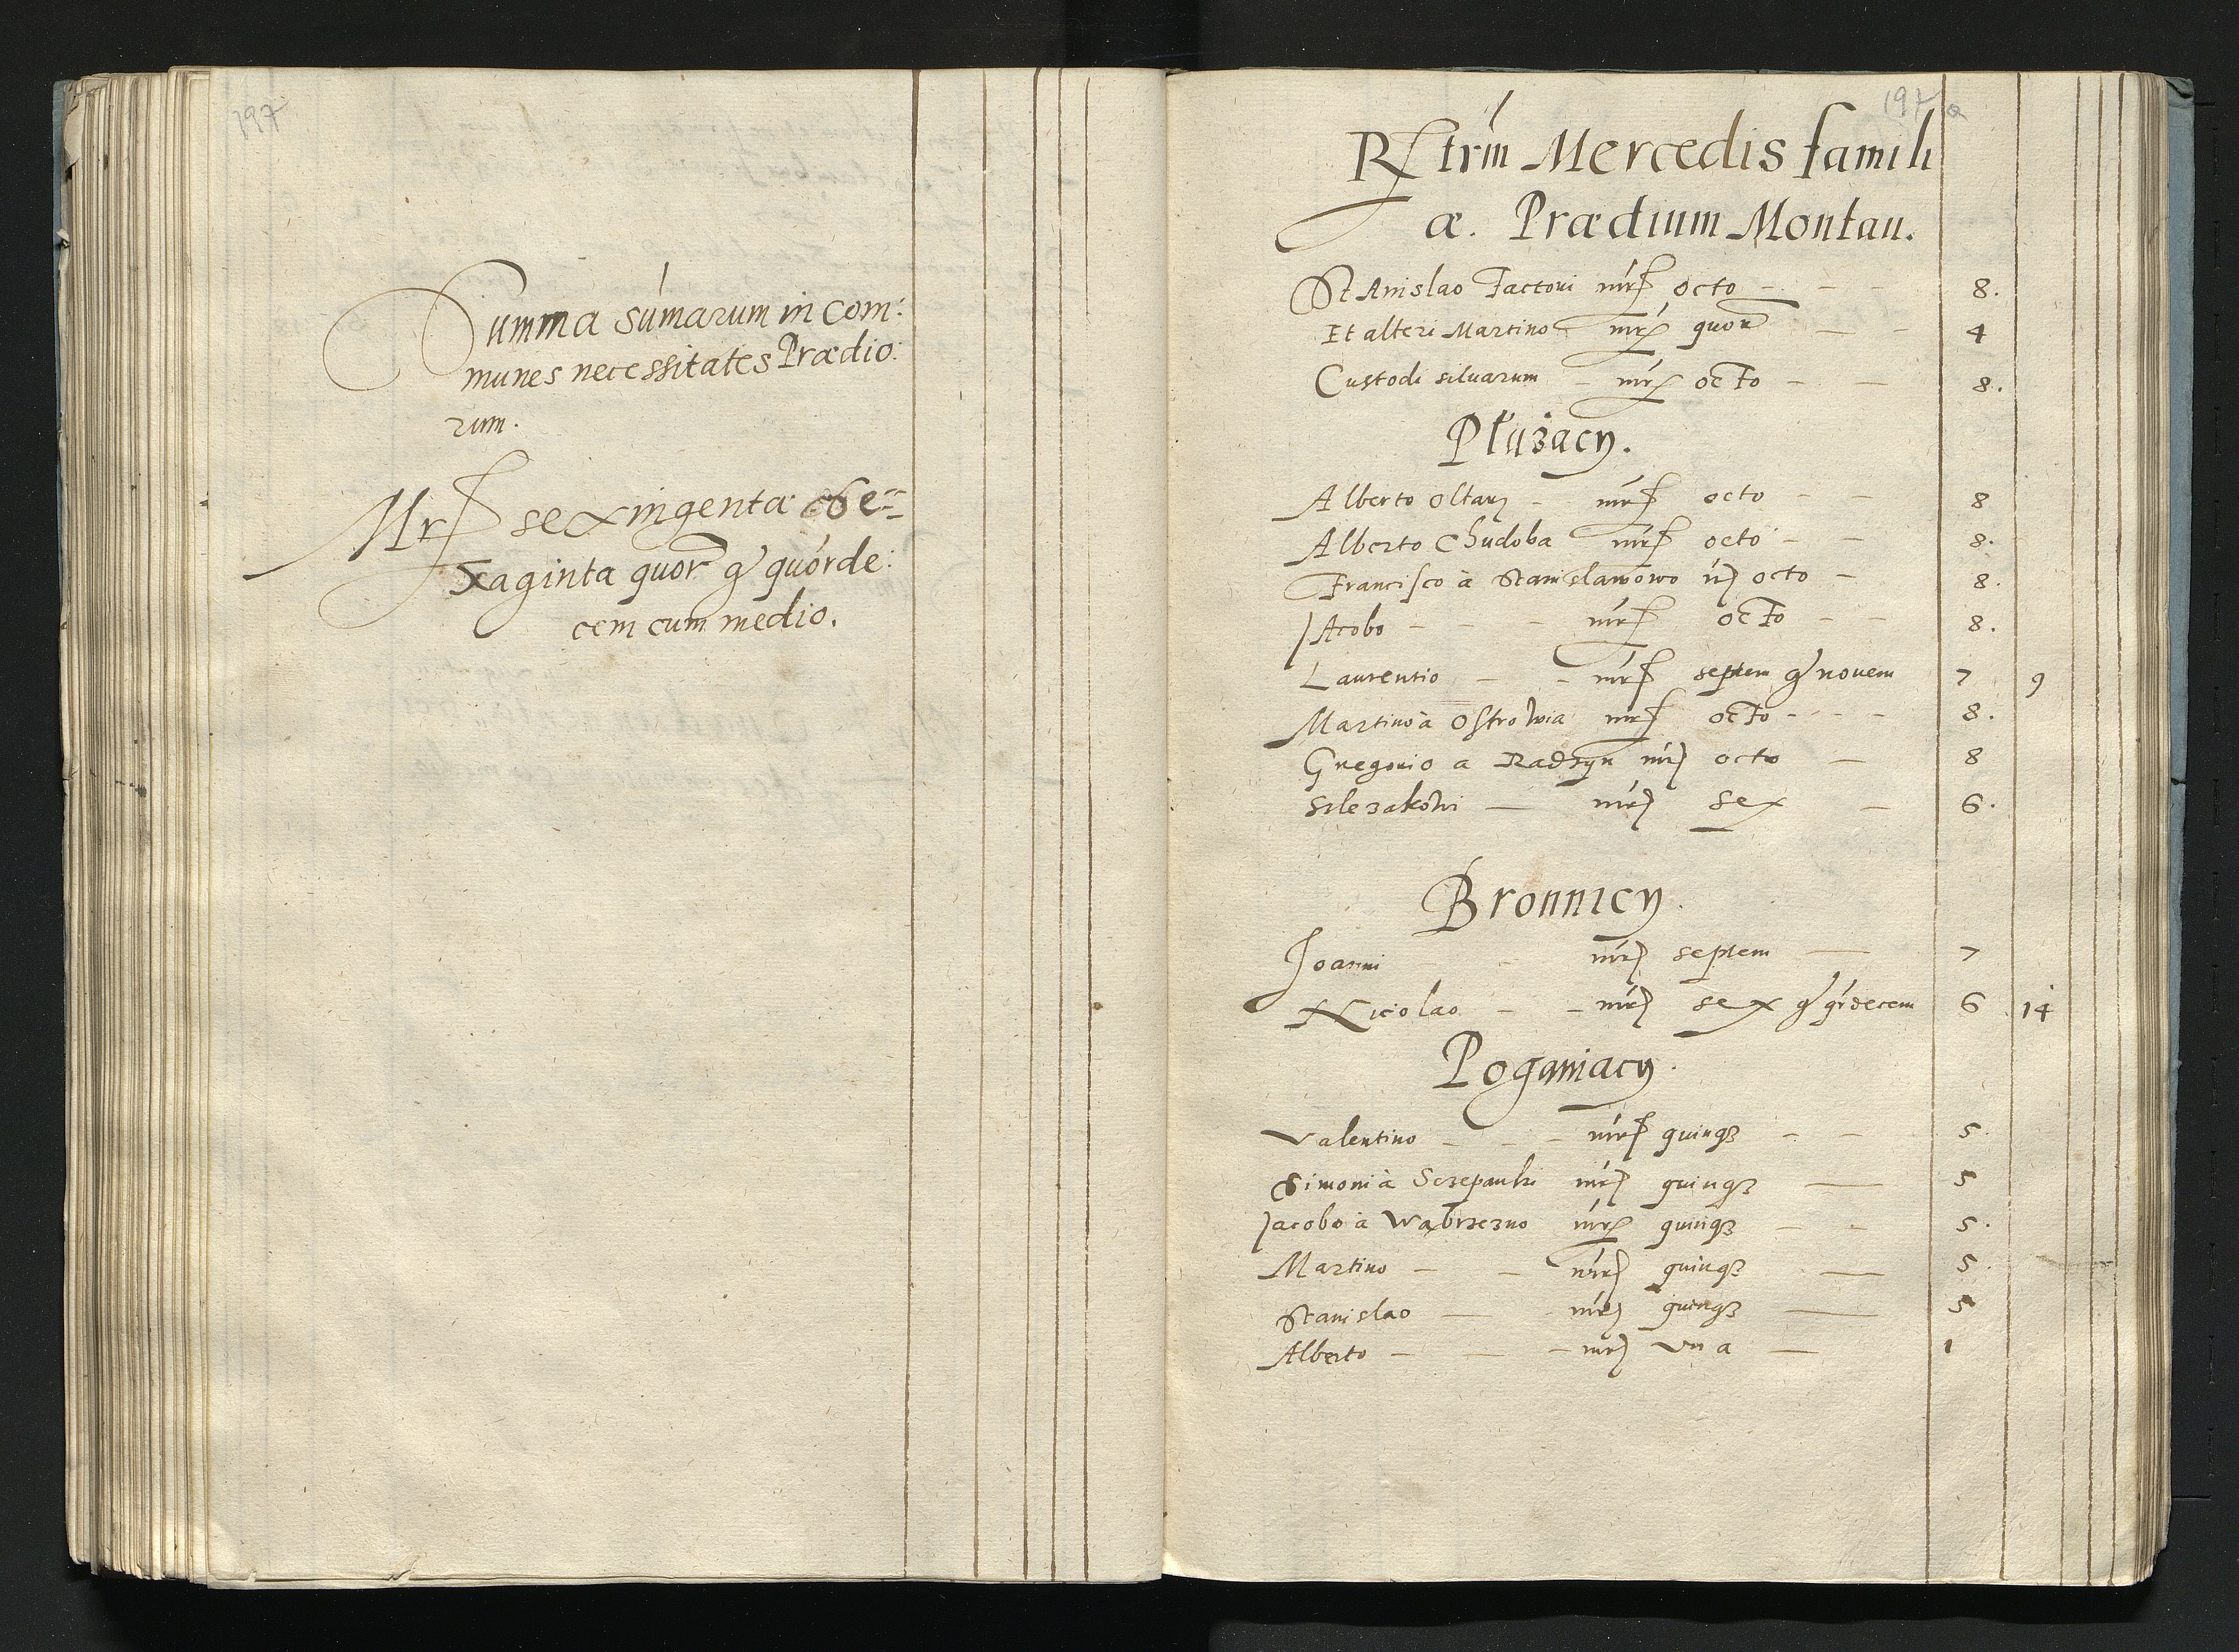 197
Summa sum̄arum in com:
munes necessitates Prædio:
rum.
Mrc sexingenta se=
xaginta quor gr quorde:
cem cum medio.
197 a
Rgtrm̄ Mercedis famili
æ. Prædium Montau.
StAnislao Factori mrc octo - - - 8.
Et alteri Martino mrc quor — - 4
Custodi siluarum - mrc octo - — 8.
Płużacy.
Alberto Oltarz - mrc octo - - 8
Alberto Chudoba mrc octo - - 8.
Francisco à Stanisławowo mrc octo - 8.
Jacobo - - - mrc octo - - 8.
Laurentio - - mrc septem gr nouem 7 9
Martino à Ostrowia mrc octo - - - 8.
Gregorio a Radzyn mrc octo — 8
Szlezakowi — mrc sex - 6.
Bronnicy.
Joanni - - mrc septem — 7
Nicolao - - mrc sex gr qrdecem 6 14
Poganiacy.
Valentino - - - mrc quinq3 - - 5.
Simoni à Sczepanki mrc quinq3 — 5
Jacobo à Wąbrzezno mrc quinq3 - - 5.
Martino - - mrc quinq3 — 5.
Stanislao — mrc quinq3 — 5
Alberto - - - mrc Vna — 1